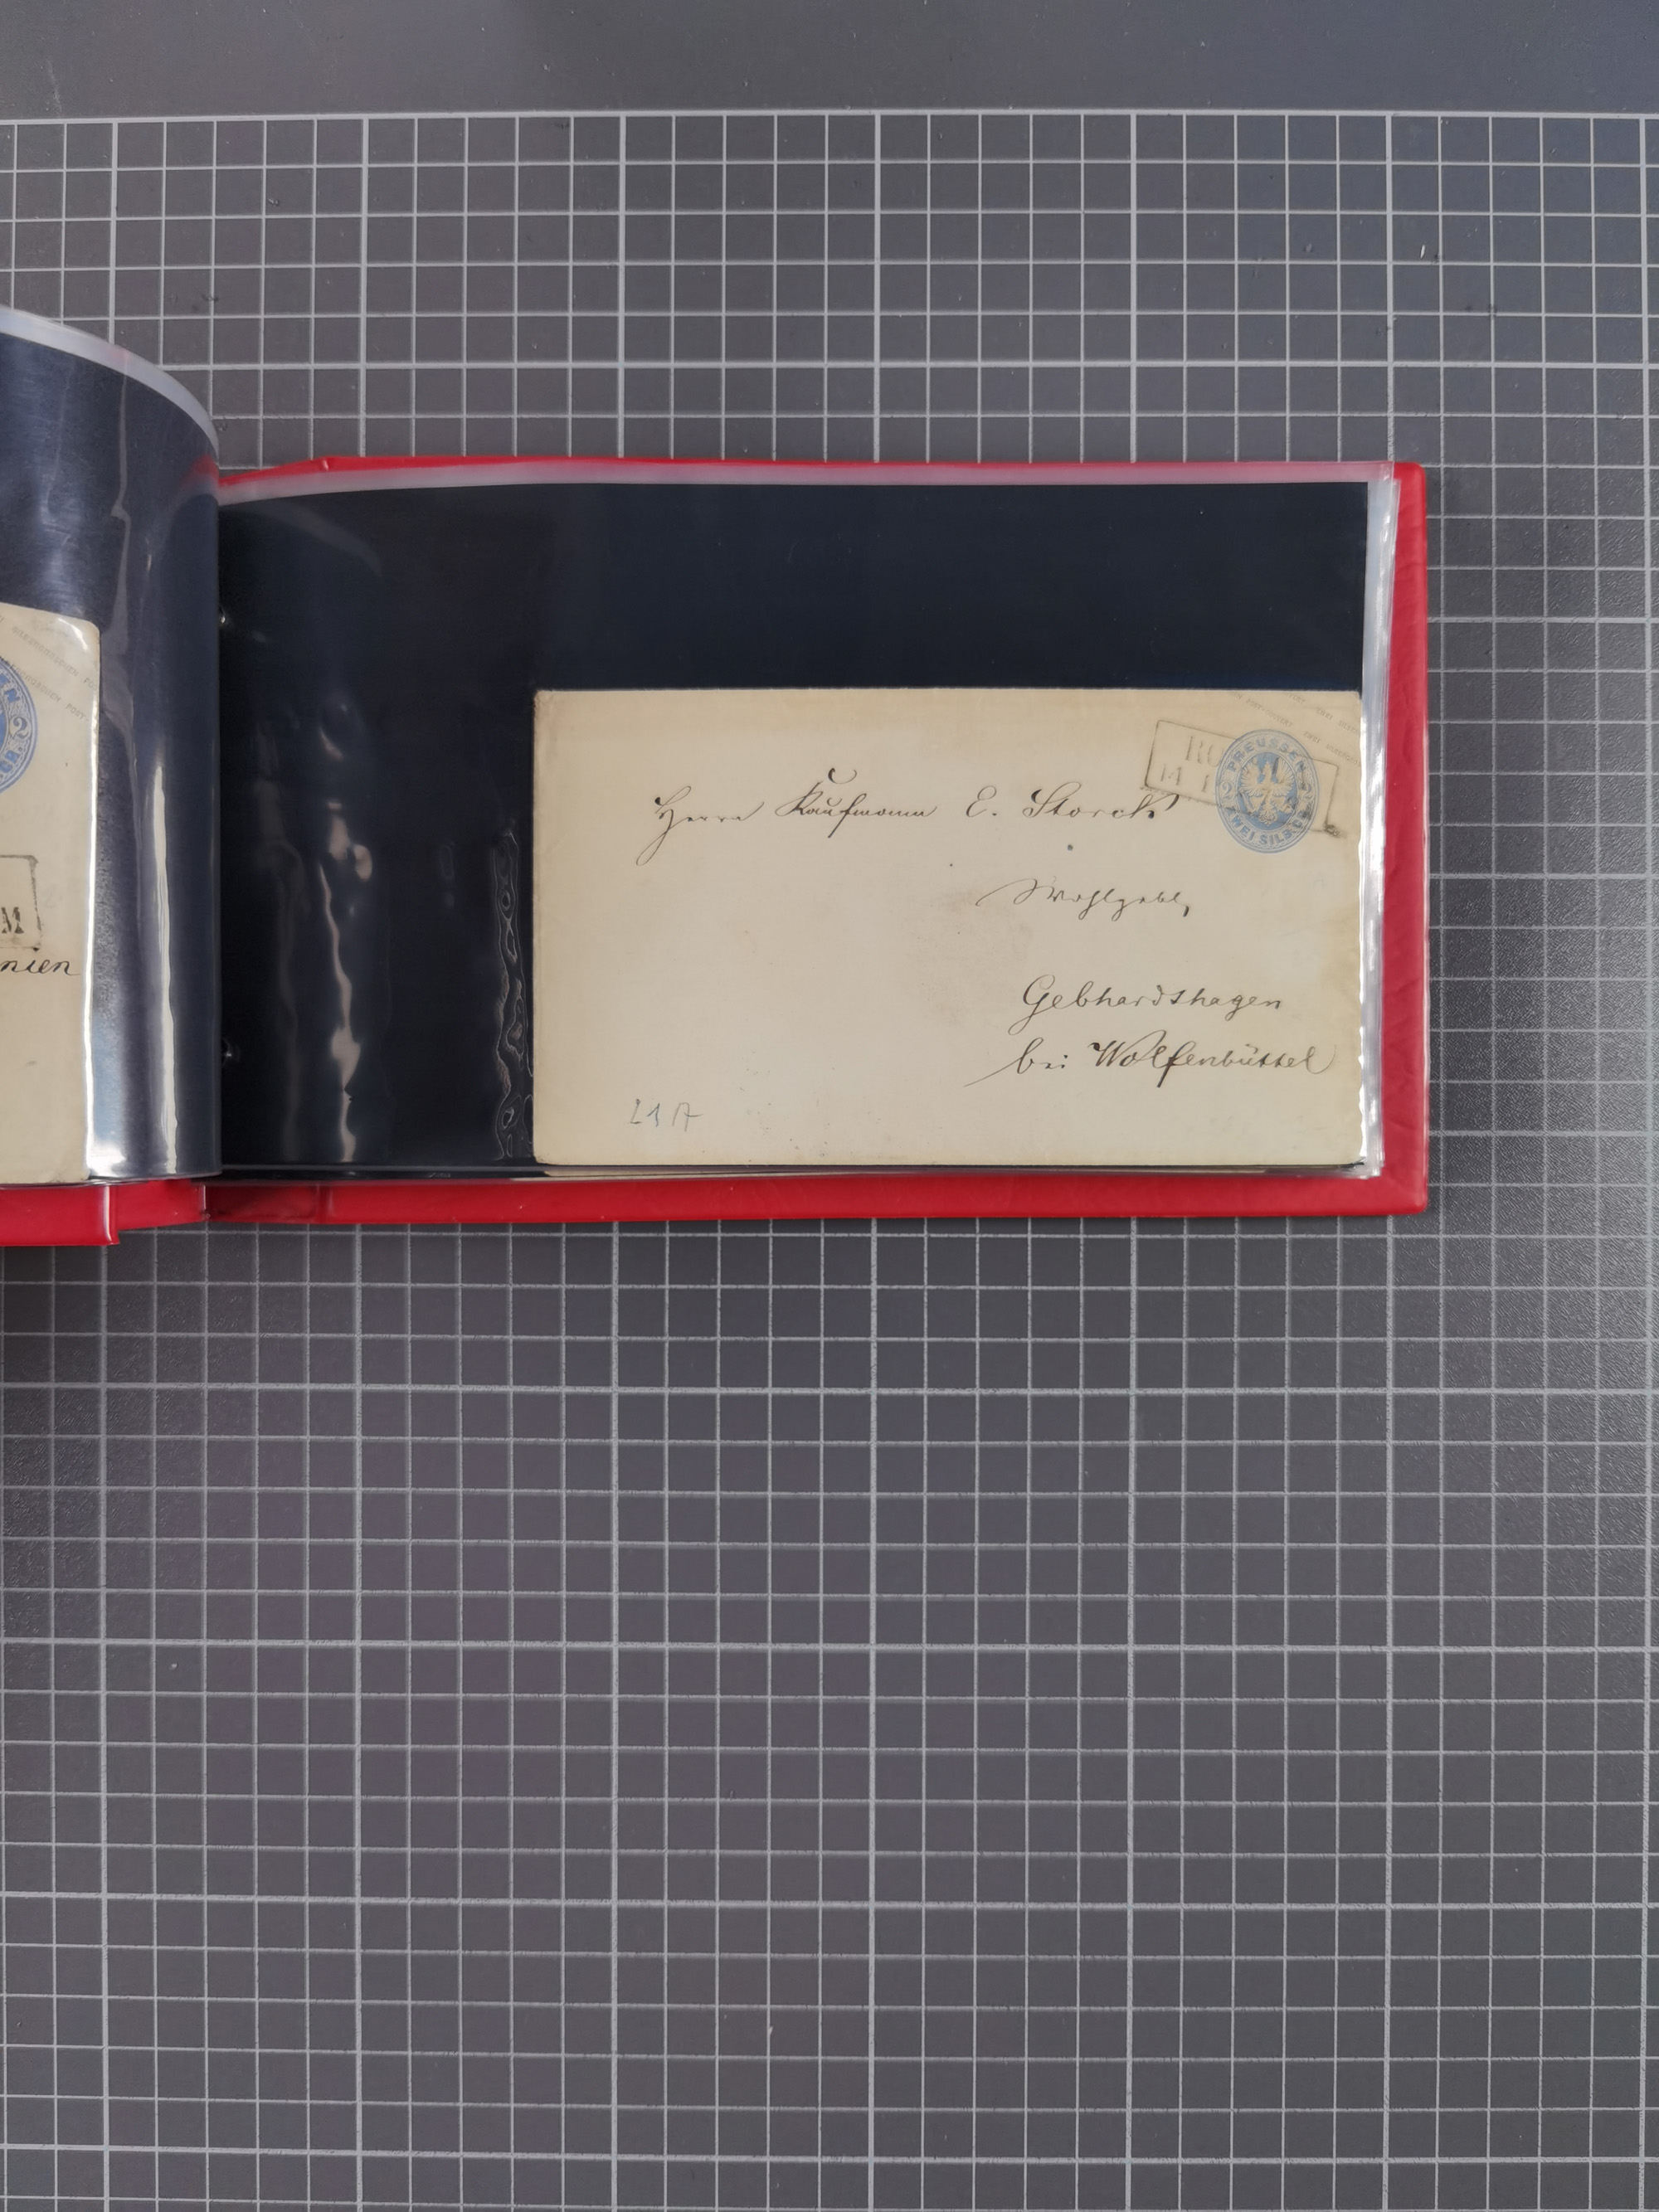 M
nien
RO
14 1
PREUSSEN
2 2
ZWEI SILB.GR.
Herrn Kaufmann E. Storck
Wohlgeb.
Gebhardshagen
bei Wolfenbüttel
21 A